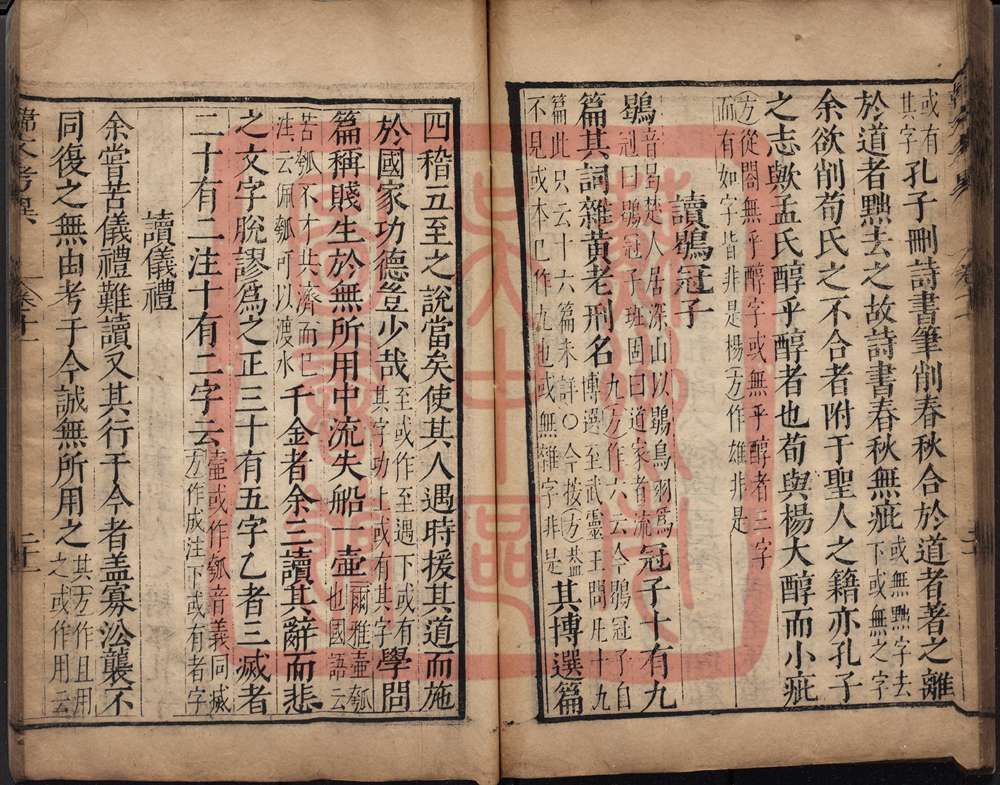 或有其字孔子刪詩書筆削春秋合於道者著之離
於道者黜去之故詩書春秋無疵或無黜字去下或無之字
余欲削荀氏之不合者附于聖人之籍亦孔子
之志歟孟氏醇乎醇者也荀與楊大醇而小疵
方從閣無乎醇字或無乎醇者三字而有如字皆非是楊方作雄非是
讀鶡冠子
鶡音曷楚人居深山以鶡鳥羽爲冠曰鶡冠子班固曰道家者流冠子十有九
篇其詞雜黃老刑名九方作六云今鶡冠子自博選至武靈王問凡十九
篇此只云十六篇未詳〇今按方蓋不見或本已作九也或無雜字非是其博選篇
四稽五至之說當矣使其人遇時援其道而施
於國家功德豈少哉至或作至遇下或有其字功上或有其字學問
篇稱賤生於無所用中流失船一壺爾雅壺瓠也國語云
苦瓠不才共濟而已注云佩瓠可以渡水千金者余三讀其辭而悲
之文字脫謬爲之正三十有五字乙者三滅者
二十有二注十有二字云壺或作瓠音義同滅方作成注下或有者字
讀儀禮
余嘗苦儀禮難讀又其行于今者蓋寡㳂襲不
同復之無由考于今誠無所用之其方作且用之或作用云
韓文考異
卷十一